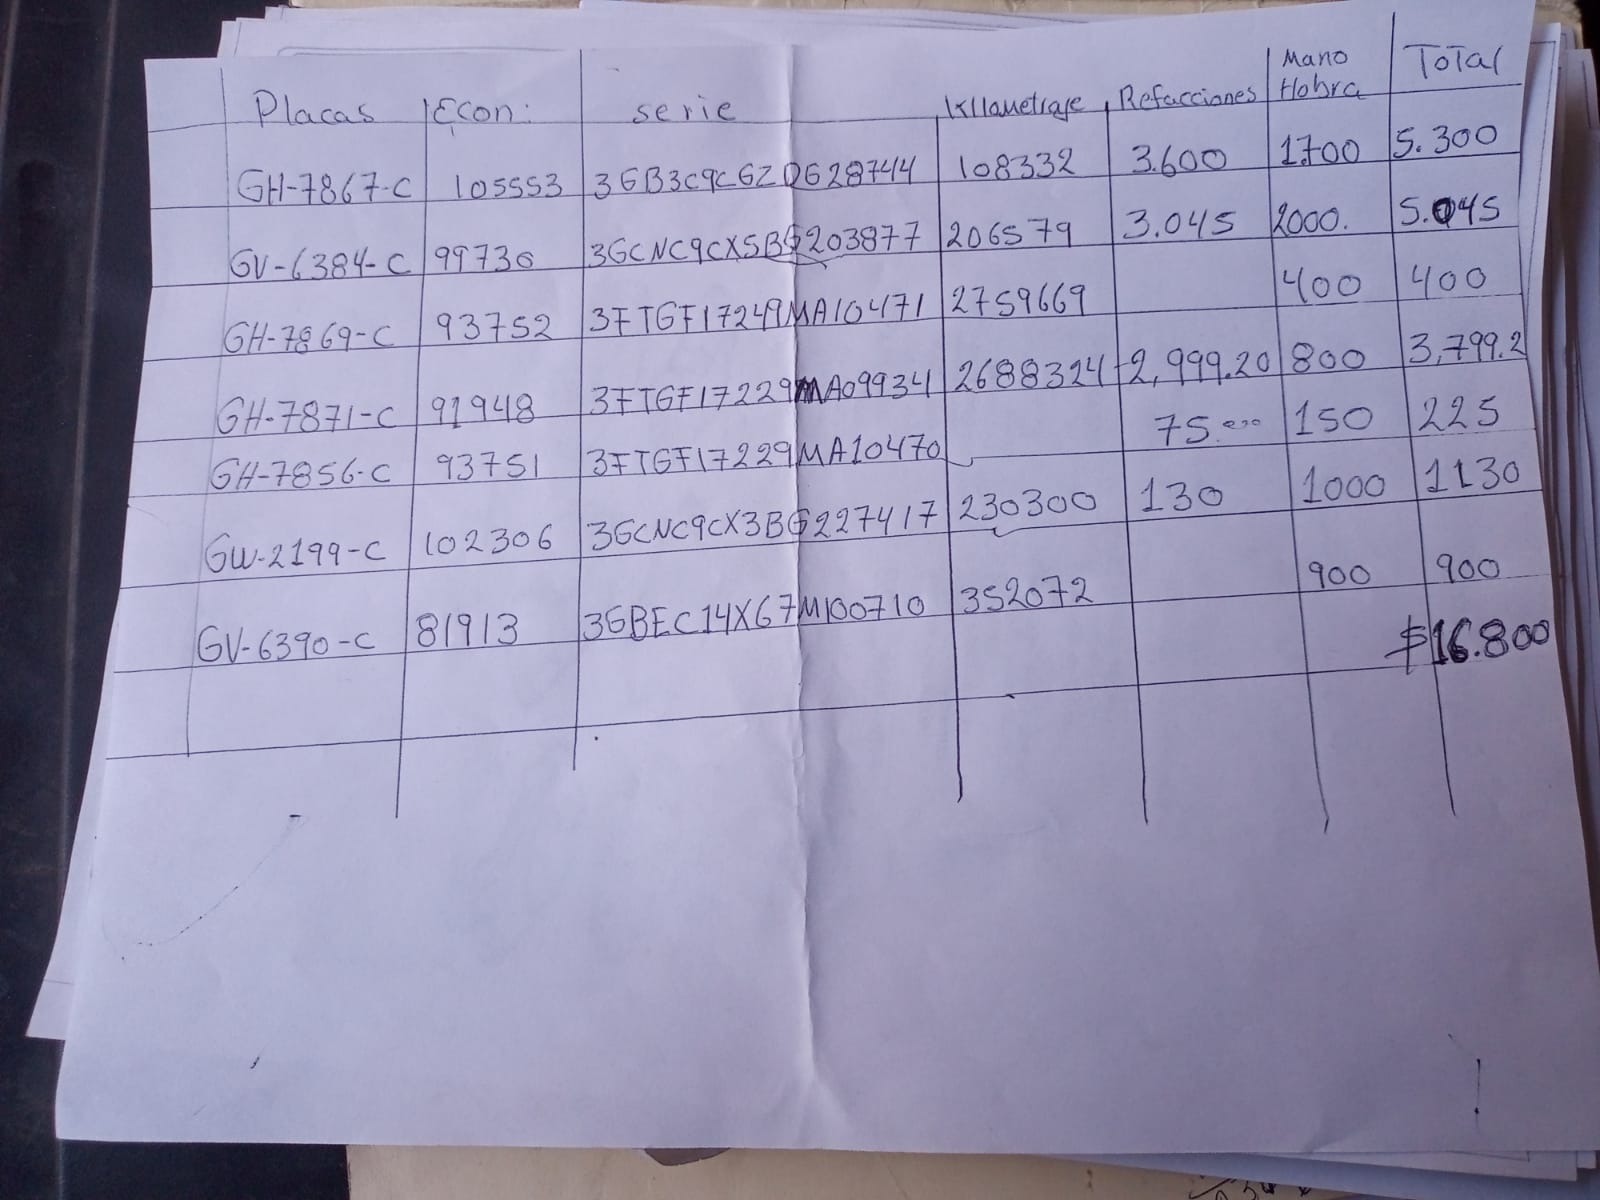 Placas Econ: serie Kilometraje Refacciones Mano Hobra Total
GH-7867-C 105553 3GB3C9CGZDG28744 108332 3.600 1.700 5.300
GV-6384-C 99730 3GCNC9CX5BG203877 206579 3.045 2000. 5.045
GH-7869-C 93752 3FTGF17249MA10471 2759669 400 400
GH-7871-C 91948 3FTGF17229MA09934 2688324 2,999.20 800 3,799.2
GH-7856-C 93751 3FTGF17229MA10470 75.000 150 225
GW-2199-C 102306 3GCNC9CX3BG227417 230300 130 1000 1130
GV-6390-C 81913 3GBEC14X67M100710 352072 900 900
$16.800